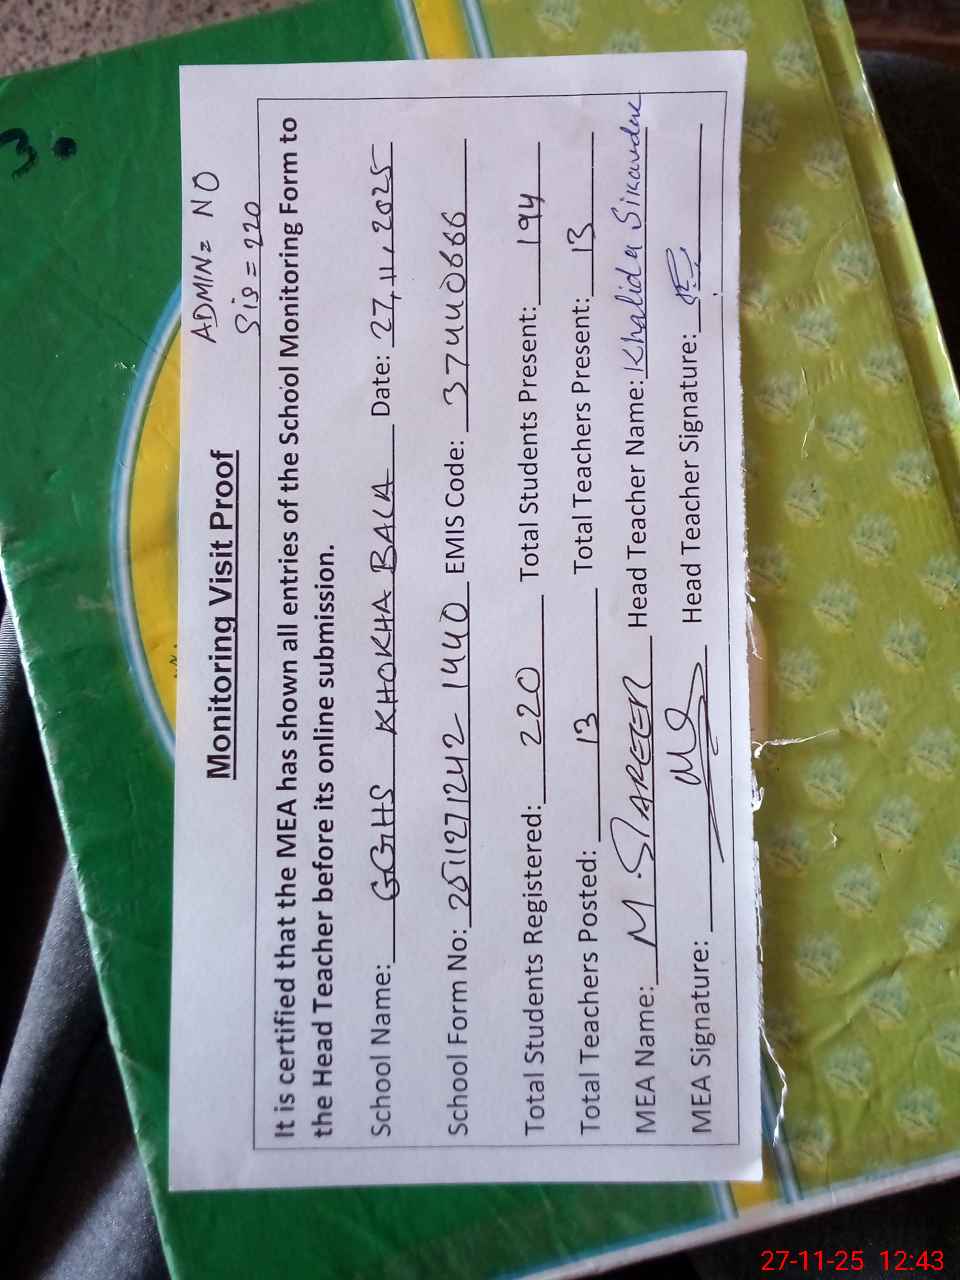 3.
ADMIN = NO
Sis = 220
Monitoring Visit Proof
It is certified that the MEA has shown all entries of the School Monitoring Form to
the Head Teacher before its online submission.
School Name: GGHS KHOKHA BALA Date: 27, 11, 2025
School Form No: 251127 1242 1440 EMIS Code: 37440666
Total Students Registered: 220 Total Students Present: 194
Total Teachers Posted: 13 Total Teachers Present: 13
MEA Name: M. Head Teacher Name: Khalida
MEA Signature: Head Teacher Signature:
27-11-25 12:43